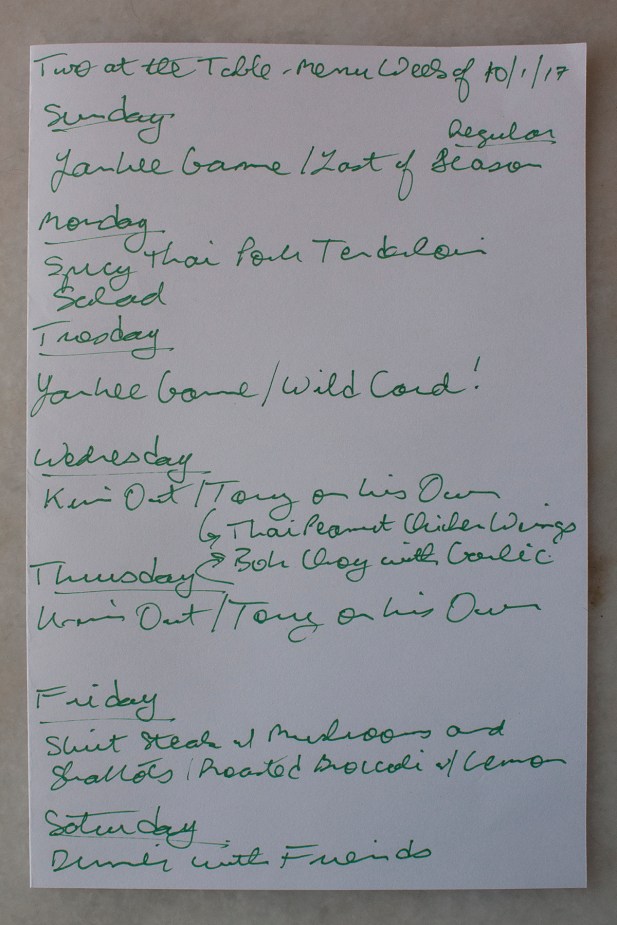 Two at the Table - Menu Week of 10/1/17
Sunday
Regular
Yankee Game / Last of Season
Monday
Spicy Thai Pork Tenderloin
Salad
Tuesday
Yankee Game / Wild Card!
Wednesday
Kim Out / Tony on his Own
Thai Peanut Chicken Wings
Bok Choy with Garlic
Thursday
Kim Out / Tony on his Own
Friday
Skirt Steak w/ Mushrooms and
Shallots / Roasted Broccoli w/ Lemon
Saturday
Dinner with Friends